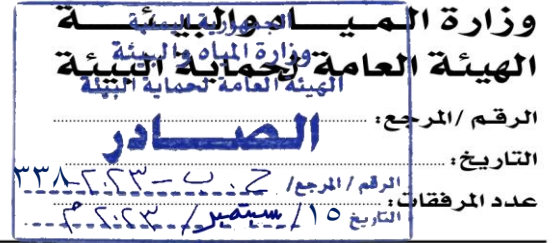 وزارة المياه والبيئة
الهيئة العامة لحماية البيئة
الرقم /المرجع:
التاريخ:
عدد المرفقات:
الجمهورية اليمنية
وزارة المياه والبيئة
الهيئة العامة لحماية البيئة
الصادر
الرقم / المرجع/ ح . ب - ٢٠٢٣ - ٣٣٨
التاريخ ١٥ / سبتمبر / ٢٠٢٣ م